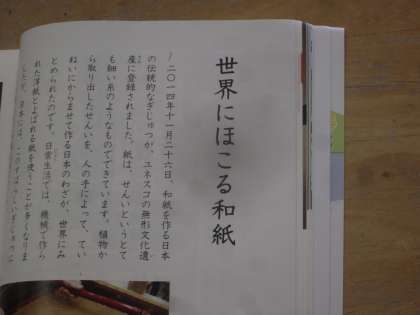 世界にほこる和紙
二〇一四年十一月二十六日、和紙を作る日本
の伝統的なぎじゅつが、ユネスコの無形文化遺
産に登録されました。紙は、せんいというとて
も細い糸のようなものでできています。植物か
ら取り出したせんいを、人の手によって、てい
ねいにからませて作る日本のわざが、世界にみ
とめられたのです。日常生活では、機械で作ら
れた洋紙とよばれる紙を使うことが多くなりま
したが、日本には、このすばらしいぎじゅつに